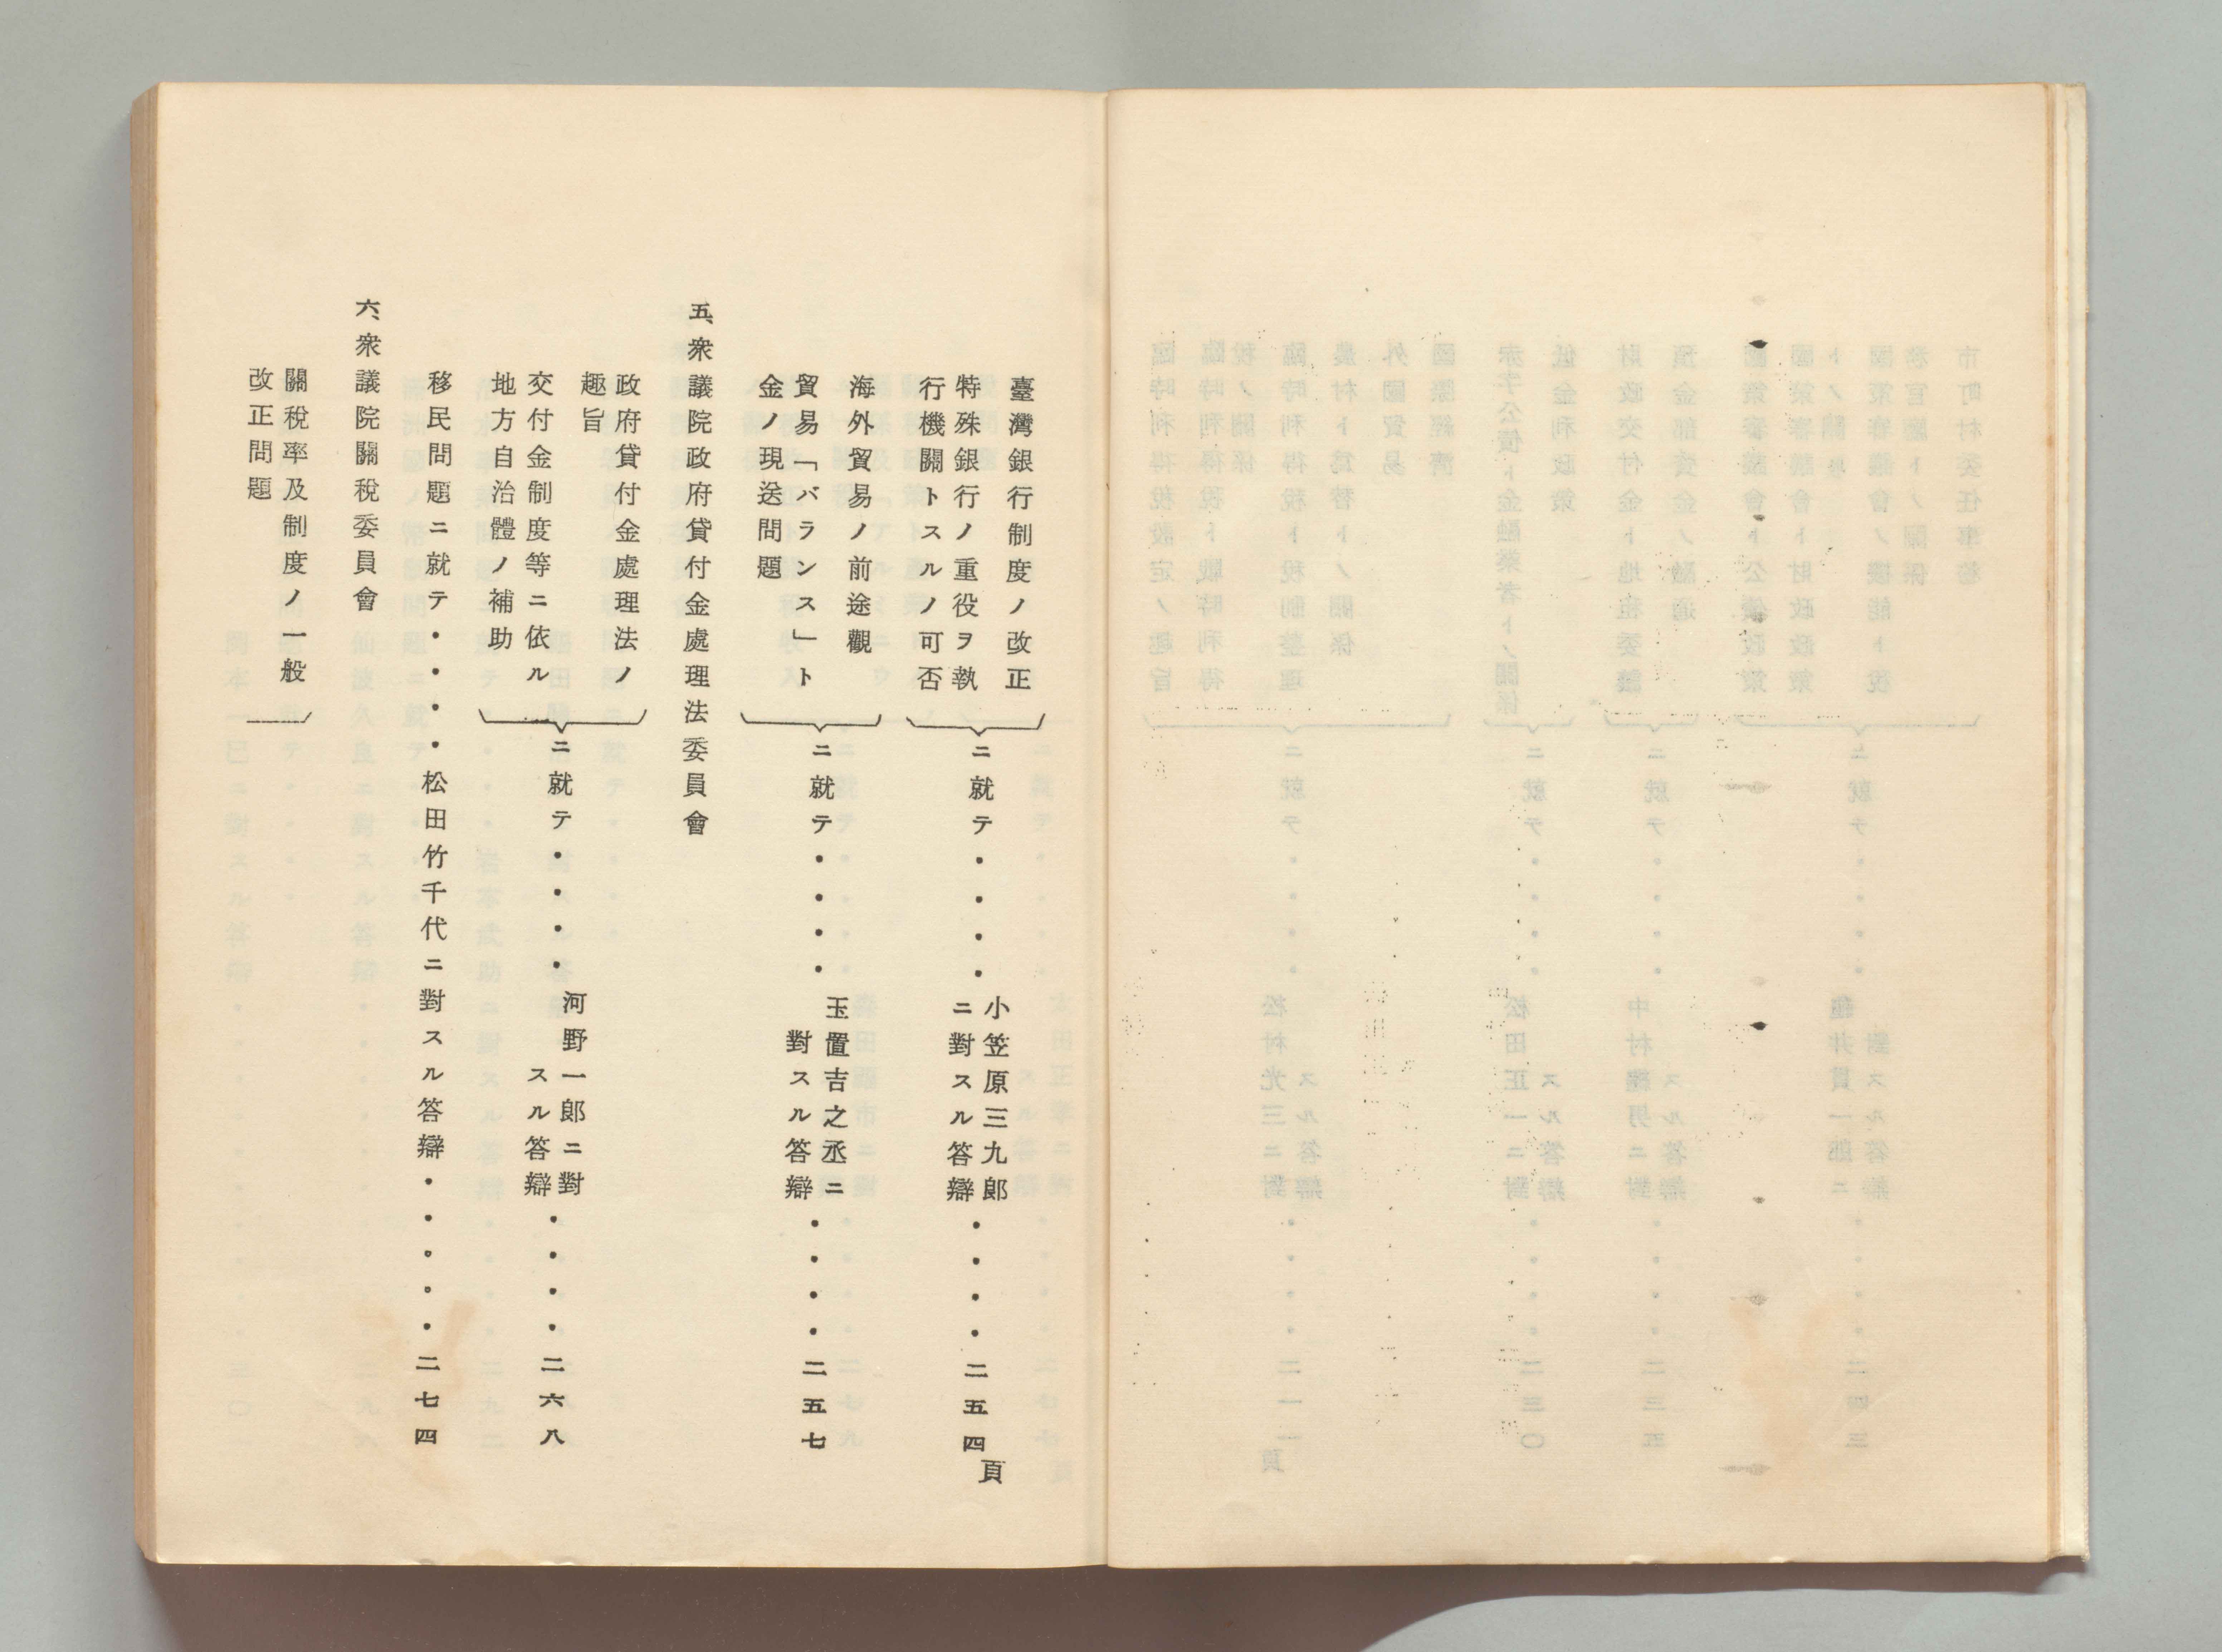 臺灣銀行制度ノ改正
特殊銀行ノ重役ヲ執
行機關トスルノ可否
ニ就テ・・・・
小笠原三九郎
ニ對スル答辯・・・・二五四頁
海外貿易ノ前途觀
貿易「バランス」ト
金ノ現送問題
ニ就テ・・・・
玉置吉之丞ニ
對スル答辯・・・・二五七
五、衆議院政府貸付金處理法委員會
政府貸付金處理法ノ
趣旨
交付金制度等ニ依ル
地方自治體ノ補助
ニ就テ・・・・
河野一郎ニ對
スル答辯・・・・二六八
移民問題ニ就テ・・・・松田竹千代ニ對スル答辯・・・・・二七四
六、衆議院關稅委員會
關稅率及制度ノ一般
改正問題